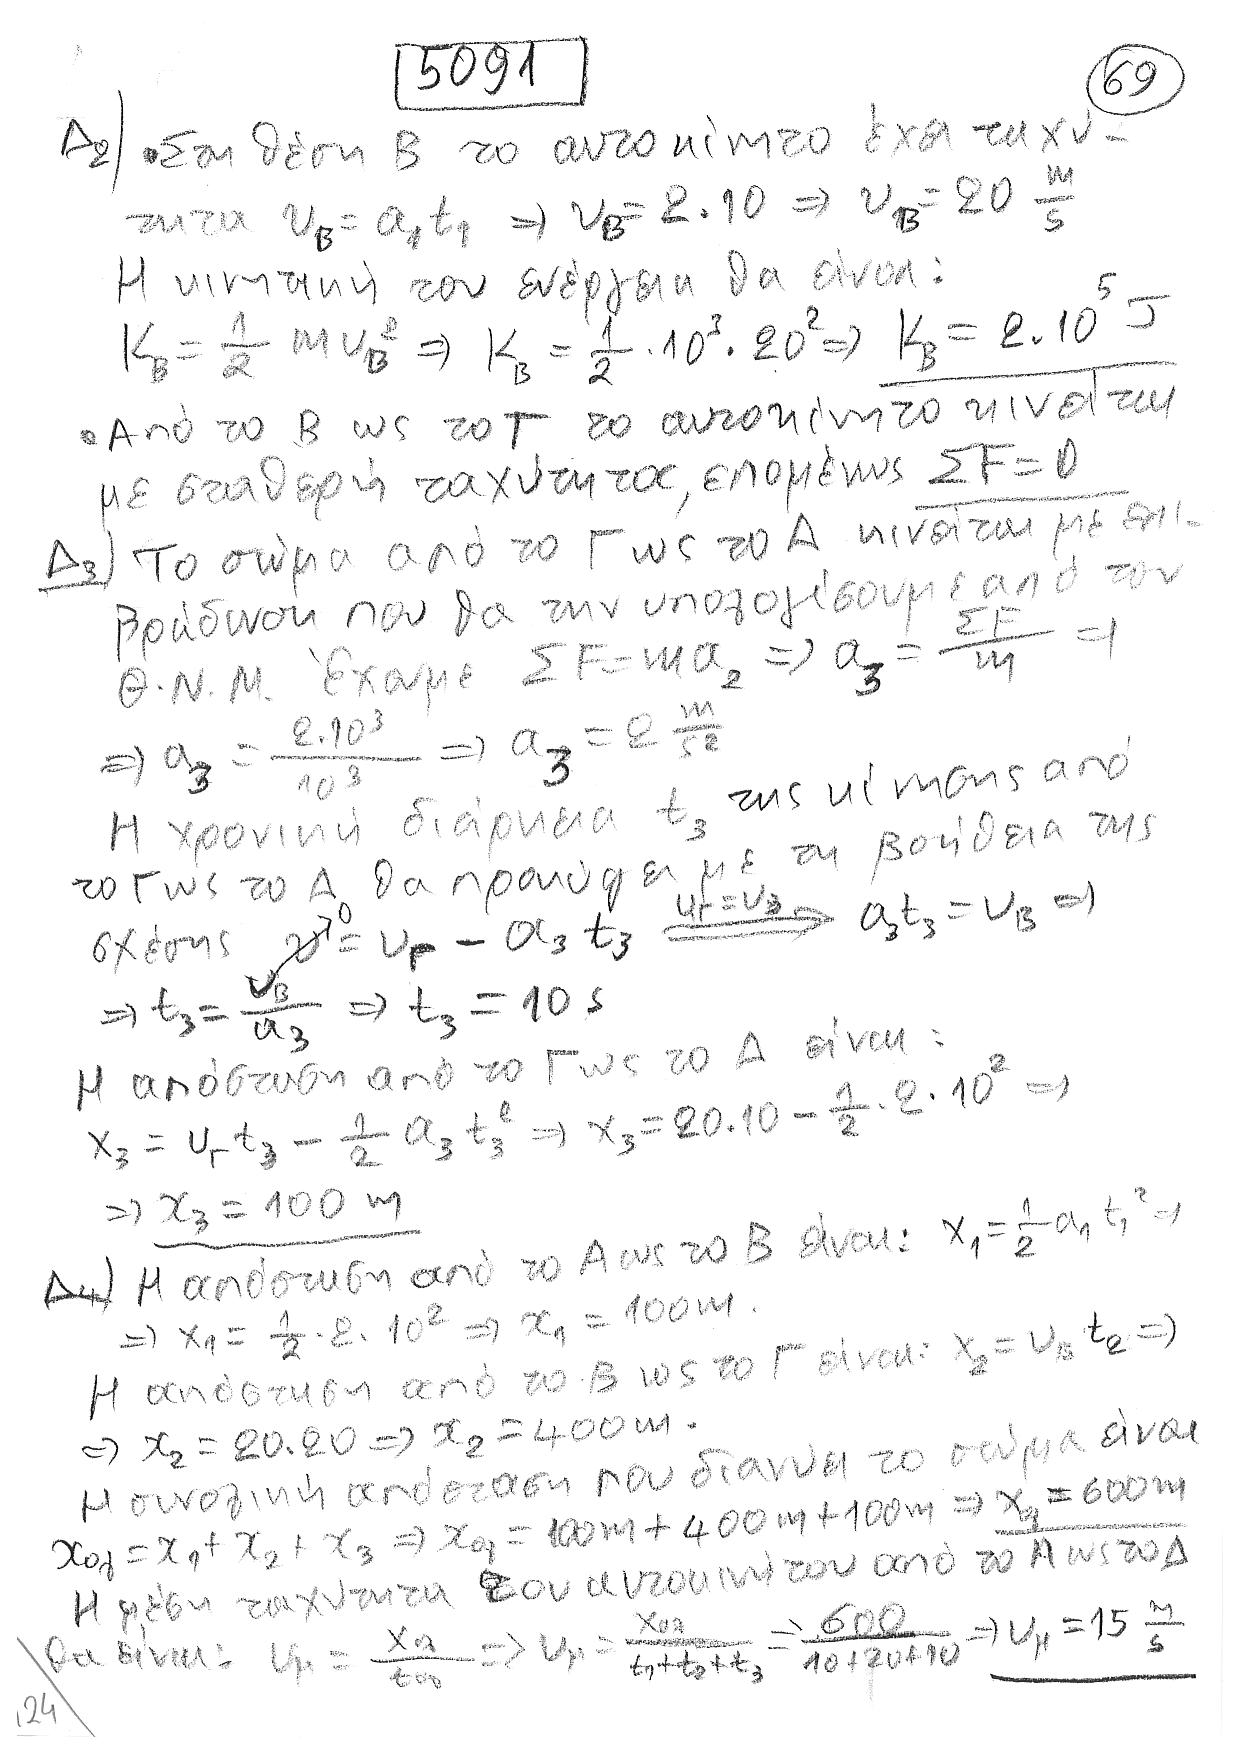 5091
69
Δ2) • Στη θέση Β το αυτοκίνητο έχει ταχύ-
τητα υ_Β = α₁t₁ ⇒ υ_Β = 2.10 ⇒ υ_Β = 20 m/s
Η κινητική του ενέργεια θα είναι:
K_B = 1/2 m υ_Β² ⇒ K_B = 1/2 . 10³ . 20² ⇒ K_B = 2.10⁵ J
• Από το Β ως το Γ το αυτοκίνητο κινείται
με σταθερή ταχύτητας, επομένως ΣF = 0
Δ3) Το σώμα από το Γ ως το Δ κινείται με επι-
βράδυνση που θα την υπολογίσουμε από τον
Θ.Ν.Μ. Έχουμε ΣF = m α₂ ⇒ α₃ = ΣF/m ⇒
⇒ α₃ = 2.10³/10³ ⇒ α₃ = 2 m/s²
Η χρονική διάρκεια t₃ της κίνησης από
το Γ ως το Δ θα προκύψει με τη βοήθεια της
σχέσης υ⁰ = υ_Γ − α₃ t₃ υ_Γ = υ_Β ⇒ α₃t₃ = υ_Β ⇒
⇒ t₃ = υ_Β/α₃ ⇒ t₃ = 10 s
Η απόσταση από το Γ ως το Δ είναι:
x₃ = υ_Γ t₃ − 1/2 α₃ t₃² ⇒ x₃ = 20.10 − 1/2 . 2 . 10² ⇒
⇒ x₃ = 100 m
Δ4) Η απόσταση από το Α ως το Β είναι: x₁ = 1/2 α₁ t₁² ⇒
⇒ x₁ = 1/2 . 2 . 10² ⇒ x₁ = 100m.
Η απόσταση από το Β ως το Γ είναι: x₂ = υ_Β t₂ ⇒
⇒ x₂ = 20.20 ⇒ x₂ = 400m.
Η συνολική απόσταση που διανύει το σώμα είναι
x_ολ = x₁ + x₂ + x₃ ⇒ x_ολ = 100m + 400m + 100m ⇒ x_ολ = 600m
Η μέση ταχύτητα του αυτοκινήτου από το Α ως το Δ
θα είναι: υ_μ = x_ολ/t_ολ ⇒ υ_μ = x_ολ/t₁+t₂+t₃ = 600/10+20+10 ⇒ υ_μ = 15 m/s
124